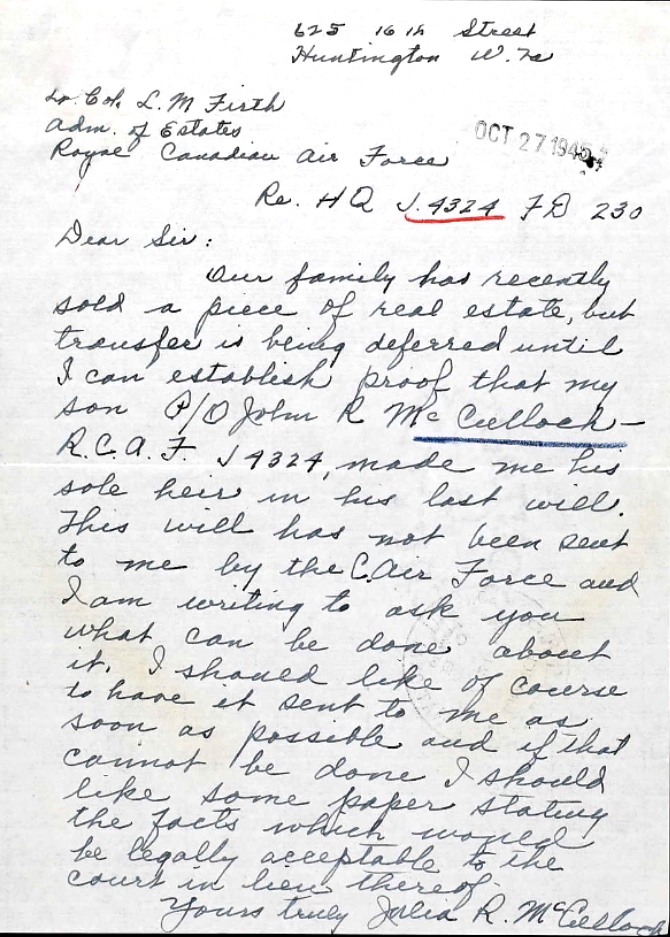 625 16th Street
Huntington W. Va
Lt. Col. L. M Firth
Adm. of Estates
Royal Canadian Air Force
OCT 27 1945
Re. HQ J.4324 FD 230
Dear Sir:
Our family has recently
sold a piece of real estate, but
transfer is being deferred until
I can establish proof that my
son P/O John R McCulloch—
R.C.A.F. J4324, made me his
sole heir in his last will.
This will has not been sent
to me by the C. Air Force and
I am writing to ask you
what can be done about
it. I should like of course
to have it sent to me as
soon as possible and if that
cannot be done I should
like some paper stating
the facts which would
be legally acceptable to the
court in lieu thereof.
Yours truly Julia R. McCulloch